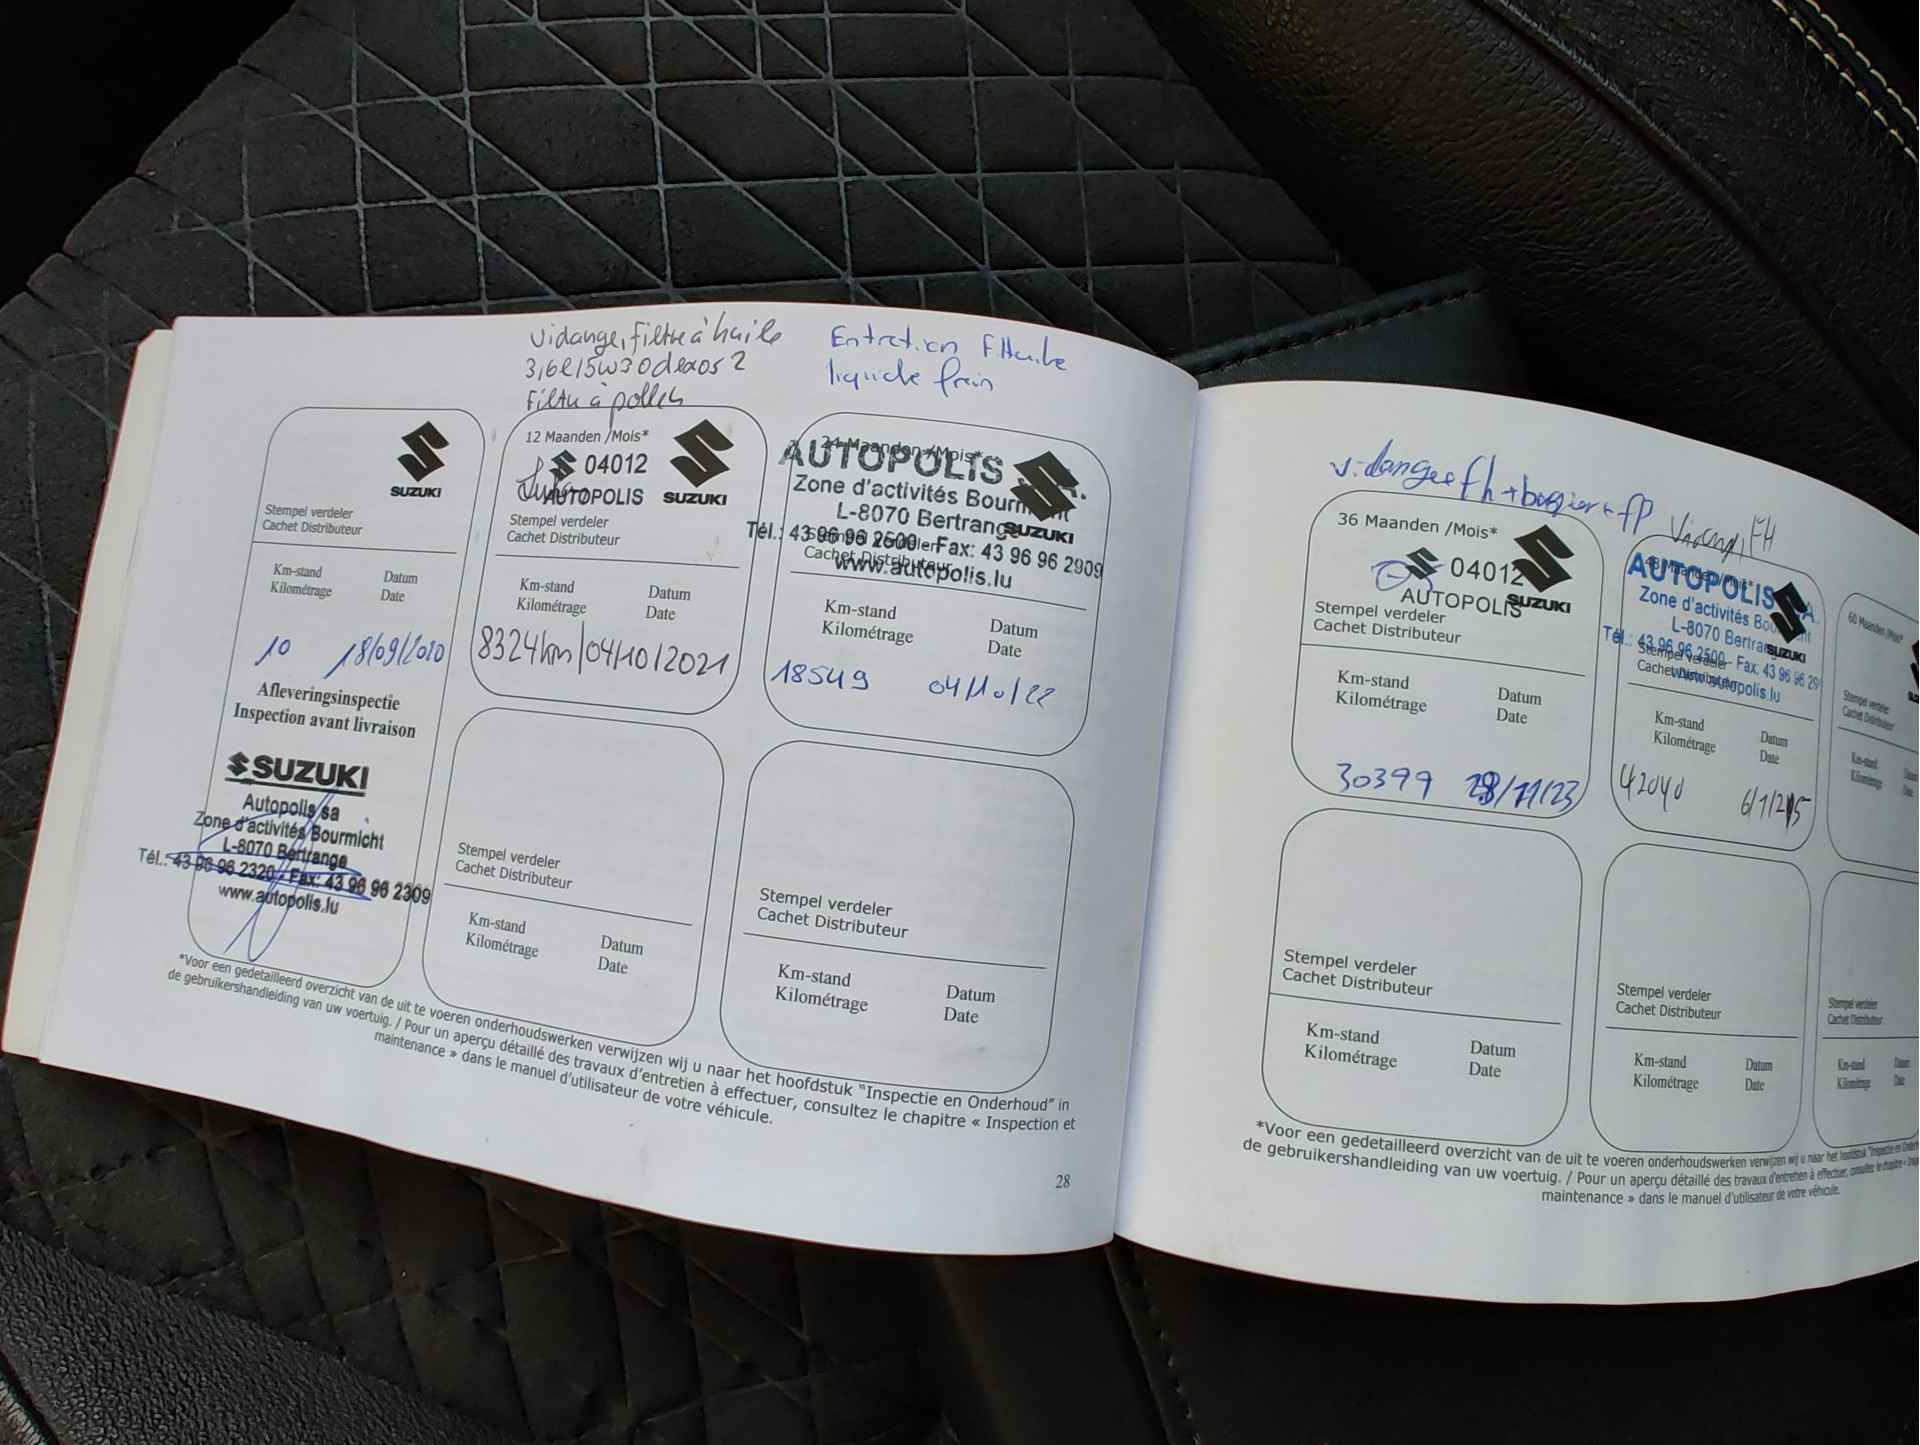 Vidange, filtre à huile
3,6l 5w30 dexos 2
Filtre à pollen
Entretien F.Huile
liquide frein
SUZUKI
Stempel verdeler
Cachet Distributeur
Km-stand Datum
Kilométrage Date
10 18/09/2020
Afleveringsinspectie
Inspection avant livraison
SUZUKI
Autopolis sa
Zone d'activités Bourmicht
L-8070 Bertrange
Tél.: 43 96 96 2320 - Fax: 43 96 96 2309
www.autopolis.lu
12 Maanden /Mois*
04012
AUTOPOLIS SUZUKI
Stempel verdeler
Cachet Distributeur
Km-stand Datum
Kilométrage Date
8324km/04/10/2021
24 Maanden /Mois*
AUTOPOLIS S.A.
Zone d'activités Bourmicht
L-8070 Bertrange
SUZUKI
Tél.: 43 96 96 2500 - Fax: 43 96 96 2909
Stempel verdeler
Cachet Distributeur
www.autopolis.lu
Km-stand Datum
Kilométrage Date
18549 04/10/22
Stempel verdeler
Cachet Distributeur
Km-stand Datum
Kilométrage Date
Stempel verdeler
Cachet Distributeur
Km-stand Datum
Kilométrage Date
*Voor een gedetailleerd overzicht van de uit te voeren onderhoudswerken verwijzen wij u naar het hoofdstuk "Inspectie en Onderhoud" in
de gebruikershandleiding van uw voertuig. / Pour un aperçu détaillé des travaux d'entretien à effectuer, consultez le chapitre « Inspection et
maintenance » dans le manuel d'utilisateur de votre véhicule.
28
vidange fh + bougies + fp
36 Maanden /Mois*
04012
AUTOPOLIS SUZUKI
Stempel verdeler
Cachet Distributeur
Km-stand Datum
Kilométrage Date
30399 28/11/23
FH
48 Maanden /Mois*
AUTOPOLIS S.A.
Zone d'activités Bourmicht
L-8070 Bertrange
SUZUKI
Tél.: 43 96 96 2500 - Fax: 43 96 96 29
Stempel verdeler
Cachet Distributeur
www.autopolis.lu
Km-stand Datum
Kilométrage Date
42040 6/1/25
60 Maanden /Mois*
Stempel verdeler
Cachet Distributeur
Km-stand
Kilométrage
Stempel verdeler
Cachet Distributeur
Km-stand Datum
Kilométrage Date
Stempel verdeler
Cachet Distributeur
Km-stand Datum
Kilométrage Date
Stempel verdeler
Cachet Distributeur
Km-stand Datum
Kilométrage Date
*Voor een gedetailleerd overzicht van de uit te voeren onderhoudswerken verwijzen wij u naar het hoofdstuk "Inspectie en
de gebruikershandleiding van uw voertuig. / Pour un aperçu détaillé des travaux d'entretien à effectuer, consultez le chapitre «
maintenance » dans le manuel d'utilisateur de votre véhicule.